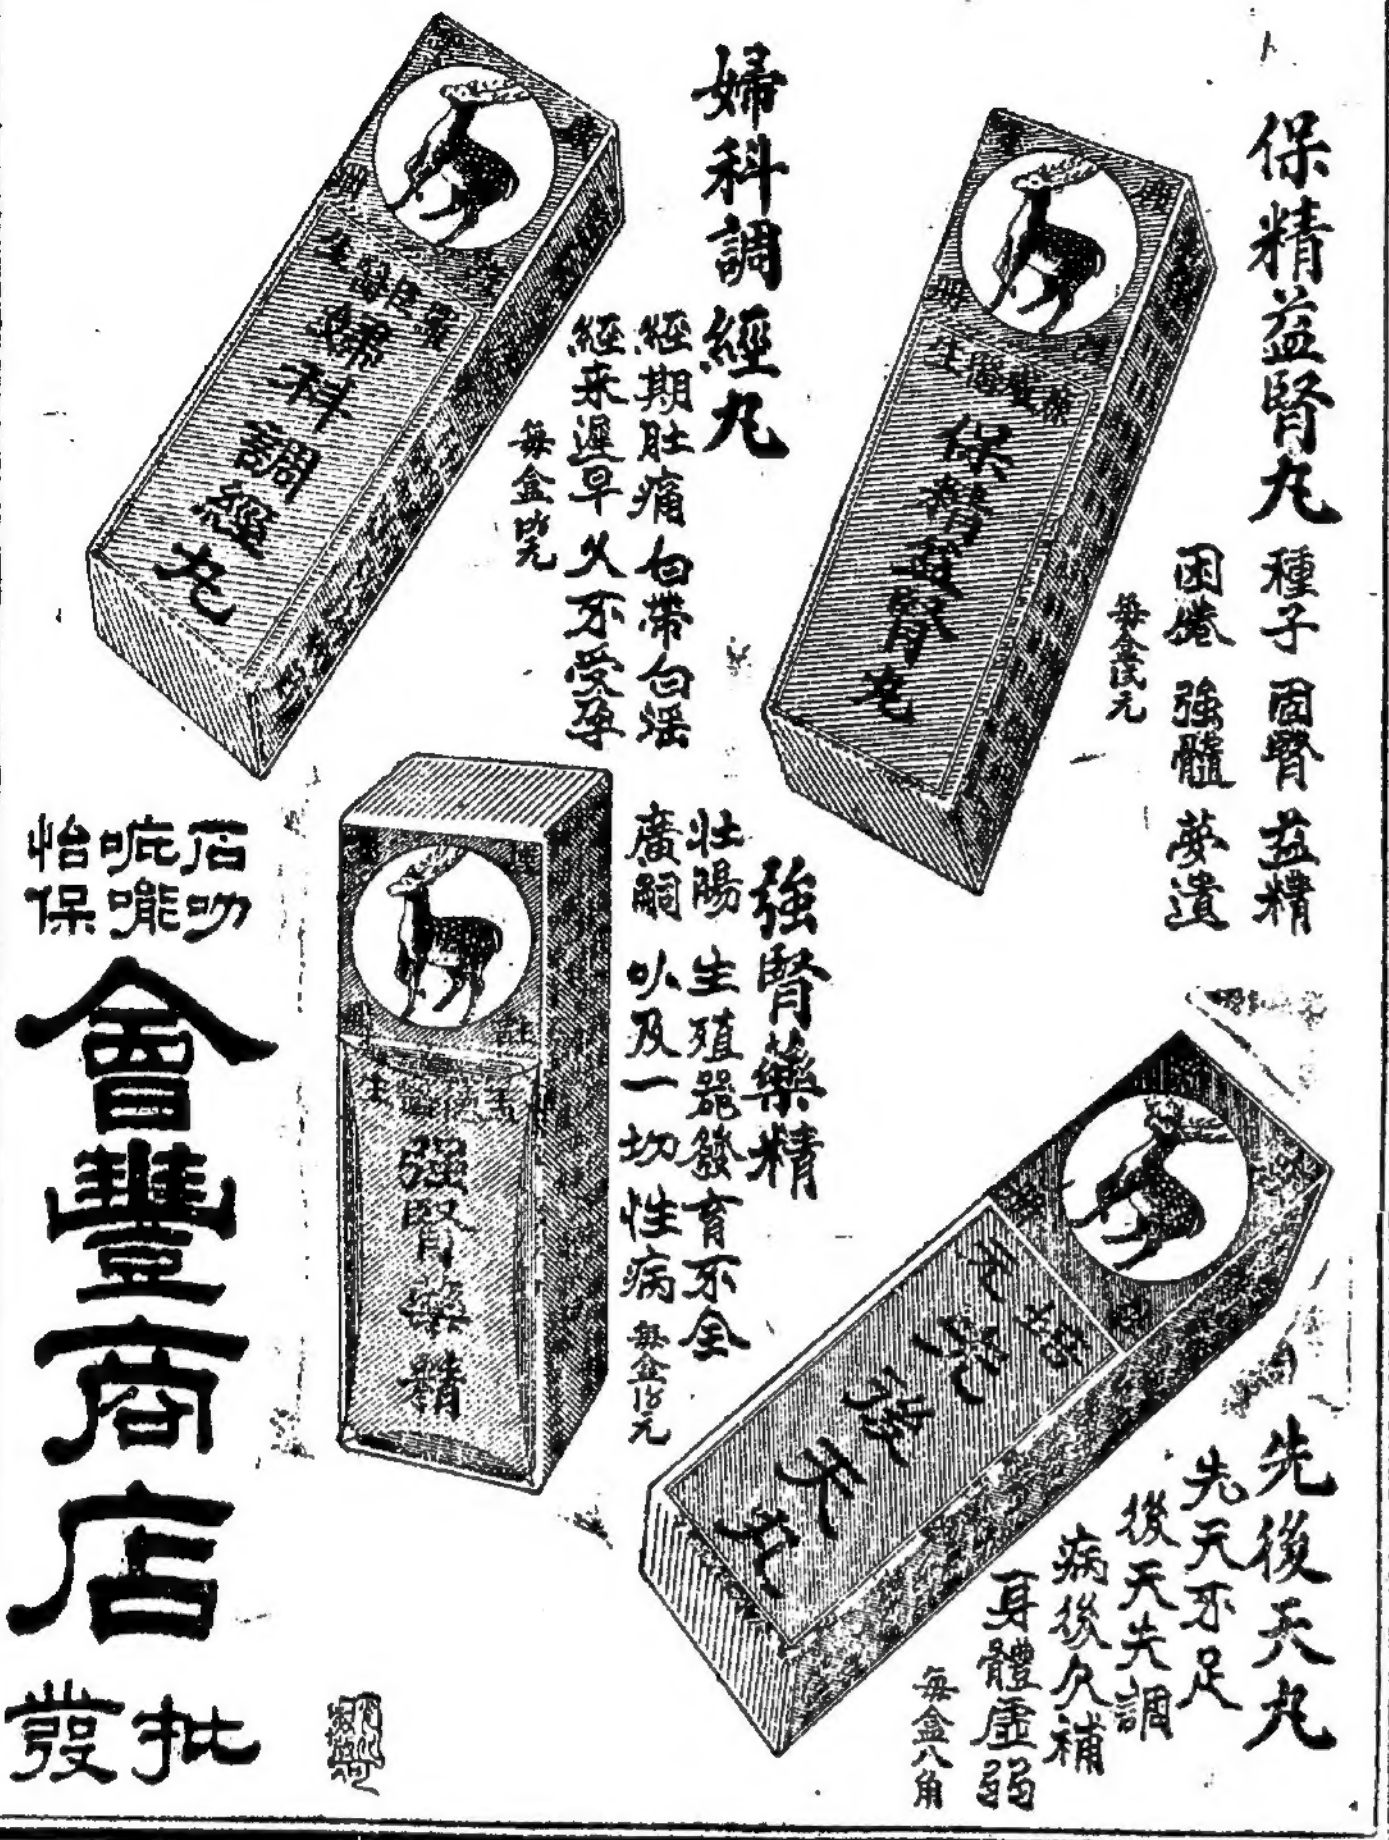 保精益腎丸
種子 固腎 益精
困倦 強髓 夢遺
每盒弍元
保精益腎丸
婦科調經丸
經期肚痛 白帶白淫
經來遲早 久不受孕
每盒
婦科調經丸
強腎藥精
壯陽 生殖器發育不全
廣嗣 以及一切性病
每盒
強腎藥精
先後天丸
先天不足
後天失調
病後久補
身體虛弱
每盒八角
先後天丸
石叻
吡嚨
怡保
會豐商店
批發